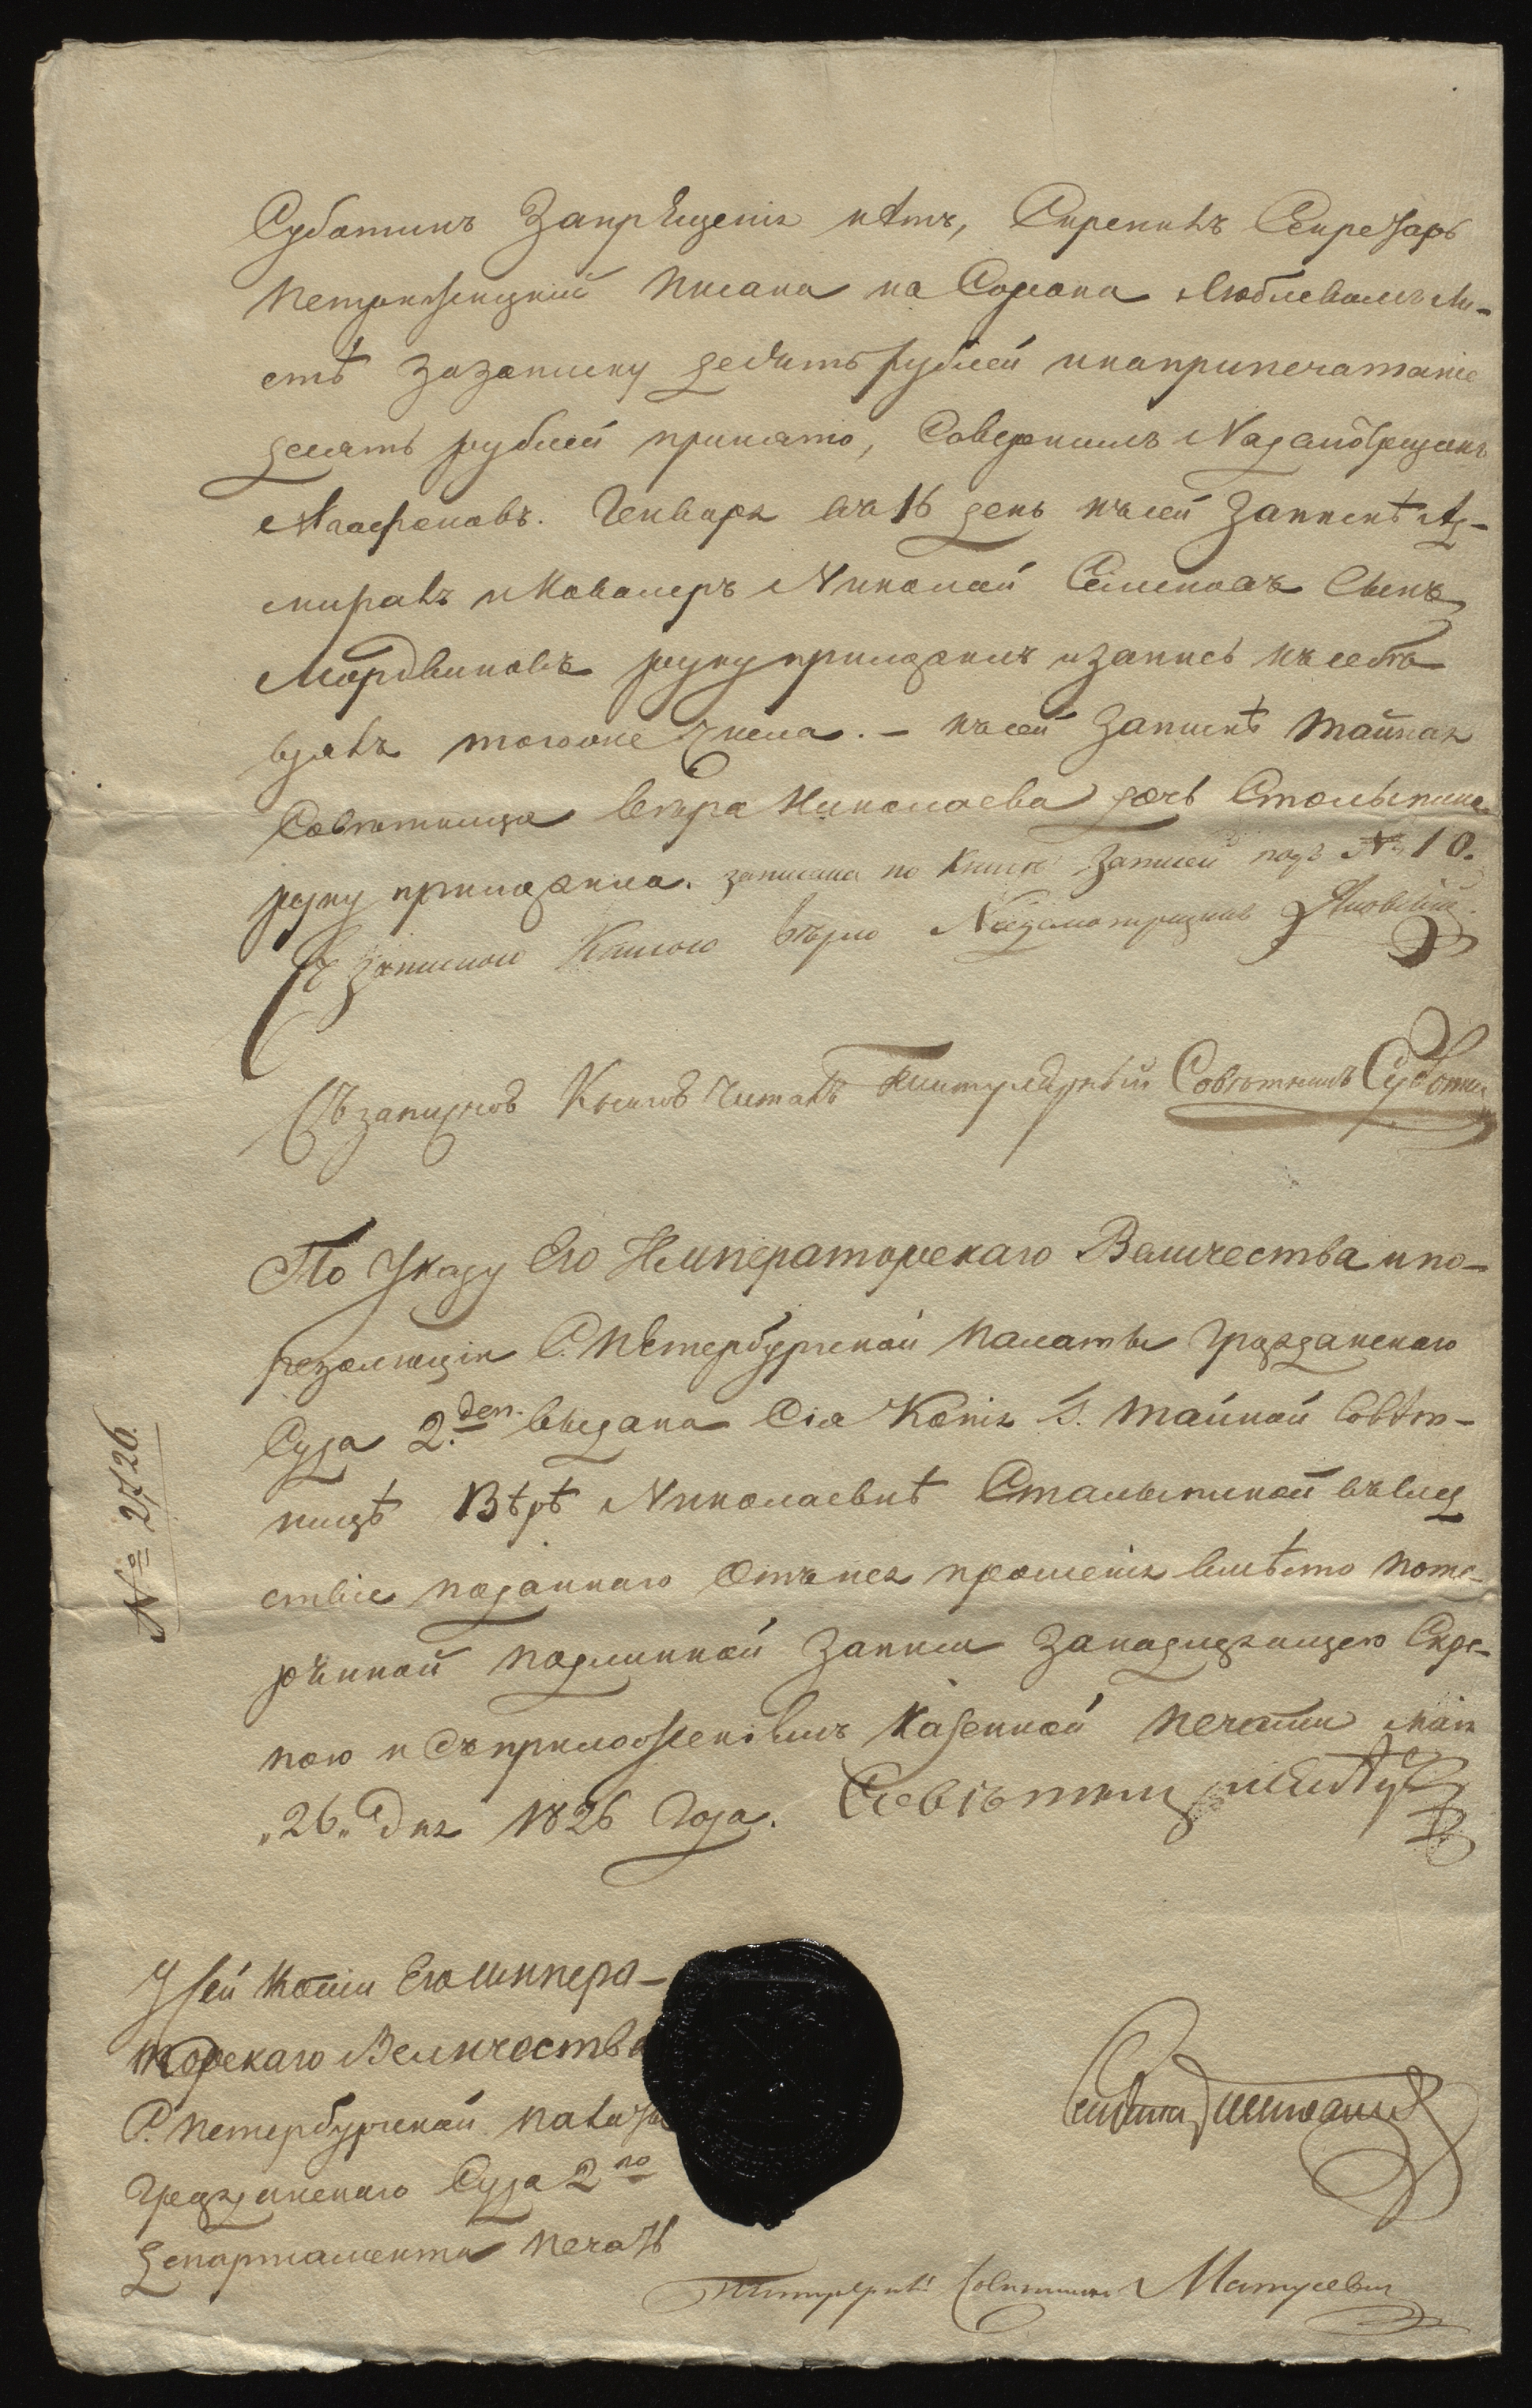 Субботинъ Запрѣщенія нѣтъ, Скрепилъ Секретарь
Писана на Сорока Рублевомъ Ли-
стѣ за записку десять рублей и на припечатаніе
десять рублей принято, Совершилъ Надсмотрщикъ
Агафоновъ. Генваря въ 16 день къ сей Запискѣ Ад-
миралъ и Кавалеръ Николай Семеновъ Сынъ
Мордвиновъ руку приложилъ и запись къ себѣ
взялъ тогоже числа. — къ сей Запискѣ Тайная
Совѣтница Вѣра Николаева дочь Столыпина
руку приложила. записана по Книгѣ Записей подъ № 10.
Съ Записною Книгою вѣрно Надсмотрщикъ Яновскій
Съ записной Книгой Читалъ Титулярный Совѣтникъ Субботин
По Указу Его Императорскаго Величества и по-
резолюціи С. Петербургской Палаты Гражданскаго
Суда 2.го деп. выдана Сія Копія Г. Тайной Совѣт-
ницѣ Вѣрѣ Николаевнѣ Столыпиной въ слѣд
ствіе поданнаго Отъ нея прошенія вмѣсто поте-
рянной подлинной Записи За надлежащею Скре-
пою и съ приложеніемъ Казенной Печати маія
„26„ Дня 1826 Года. Совѣтникъ
№ 2726.
У сей Копіи Его Импера-
торскаго Величества
С. Петербургской палаты
Гражданскаго Суда 2го
департамента печать
Секретарь
Титулярный Совѣтникъ Матусевич